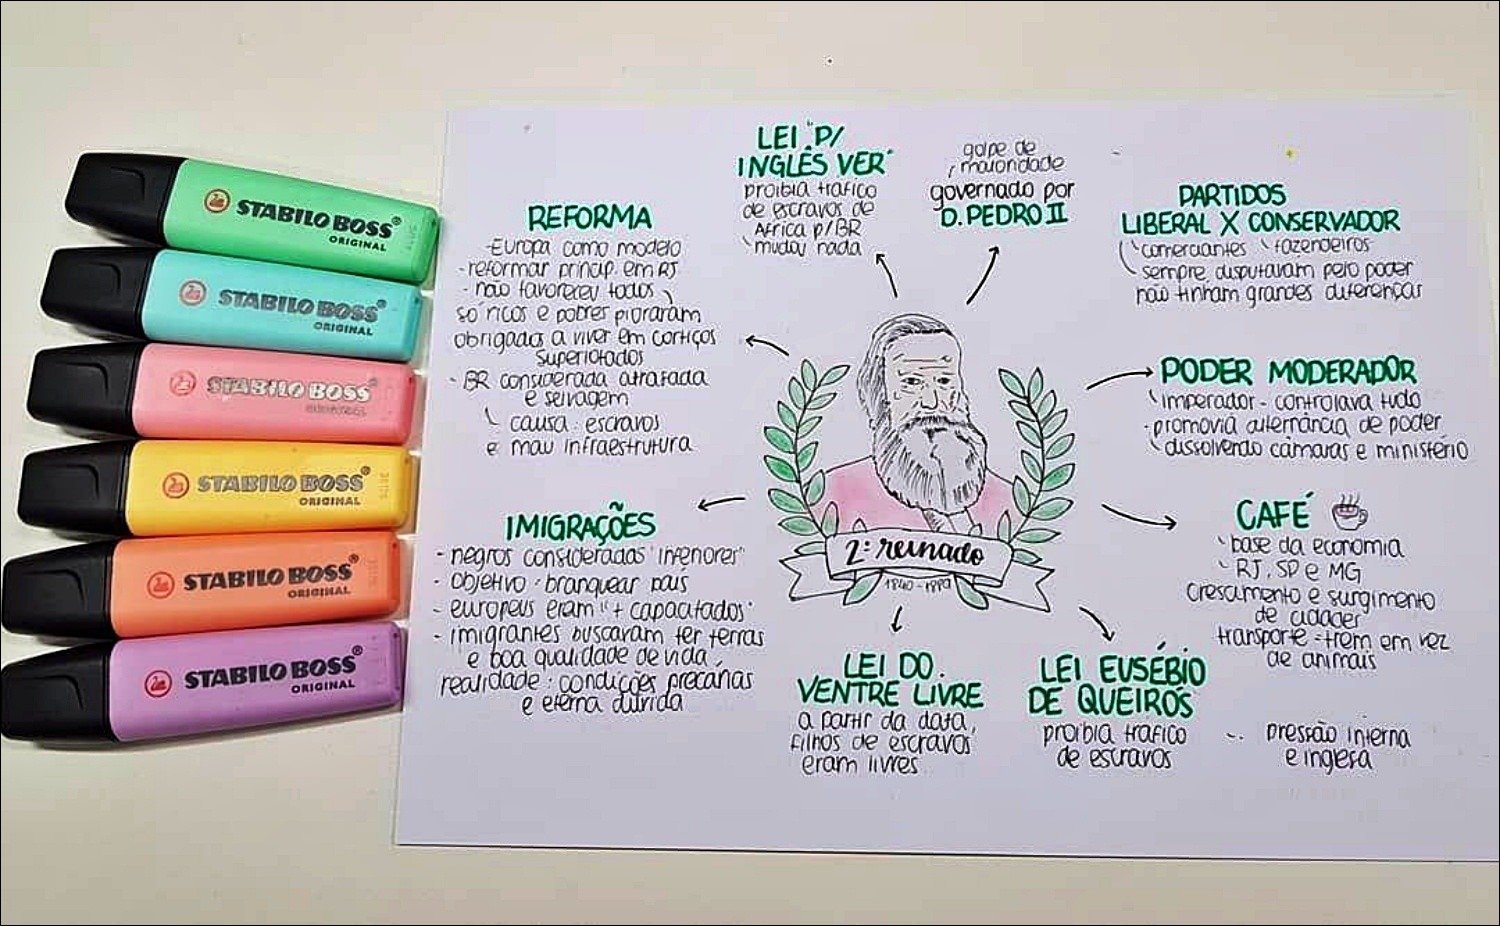 STABILO BOSS®
ORIGINAL
STABILO BOSS®
ORIGINAL
STABILO BOSS®
ORIGINAL
STABILO BOSS®
ORIGINAL
STABILO BOSS®
ORIGINAL
STABILO BOSS®
ORIGINAL
LEI "P/
INGLÊS VER"
proibia trafico
de escravos de
Africa p/ BR
mudou nada
golpe de
maioridade
governado por
D. PEDRO II
PARTIDOS
LIBERAL X CONSERVADOR
comerciantes fazendeiros
sempre disputavam pelo poder
não tinham grandes diferenças
REFORMA
- Europa como modelo
- reformar princip. em RJ
- não favoreceu todos
so ricos e pobres pioraram
obrigados a viver em cortiços
superlotados
- BR considerada atrasada
e selvagem
causa: escravos
e mau infraestrutura
PODER MODERADOR
imperador - controlava tudo
- promovia alternância de poder
dissolvendo câmaras e ministério
CAFÉ
base da economia
RJ, SP e MG
crescimento e surgimento
de cidades
transporte - trem em vez
de animais
IMIGRAÇÕES
- negros considerados "inferiores"
- objetivo: branquear país
- europeus eram "+ capacitados"
- imigrantes buscavam ter terras
e boa qualidade de vida,
realidade: condições precárias
e eterna dúvida
2º reinado
1840 - 1889
LEI DO
VENTRE LIVRE
a partir da data,
filhos de escravos
eram livres
LEI EUSÉBIO
DE QUEIRÓS
proibia trafico
de escravos
pressão interna
e inglesa